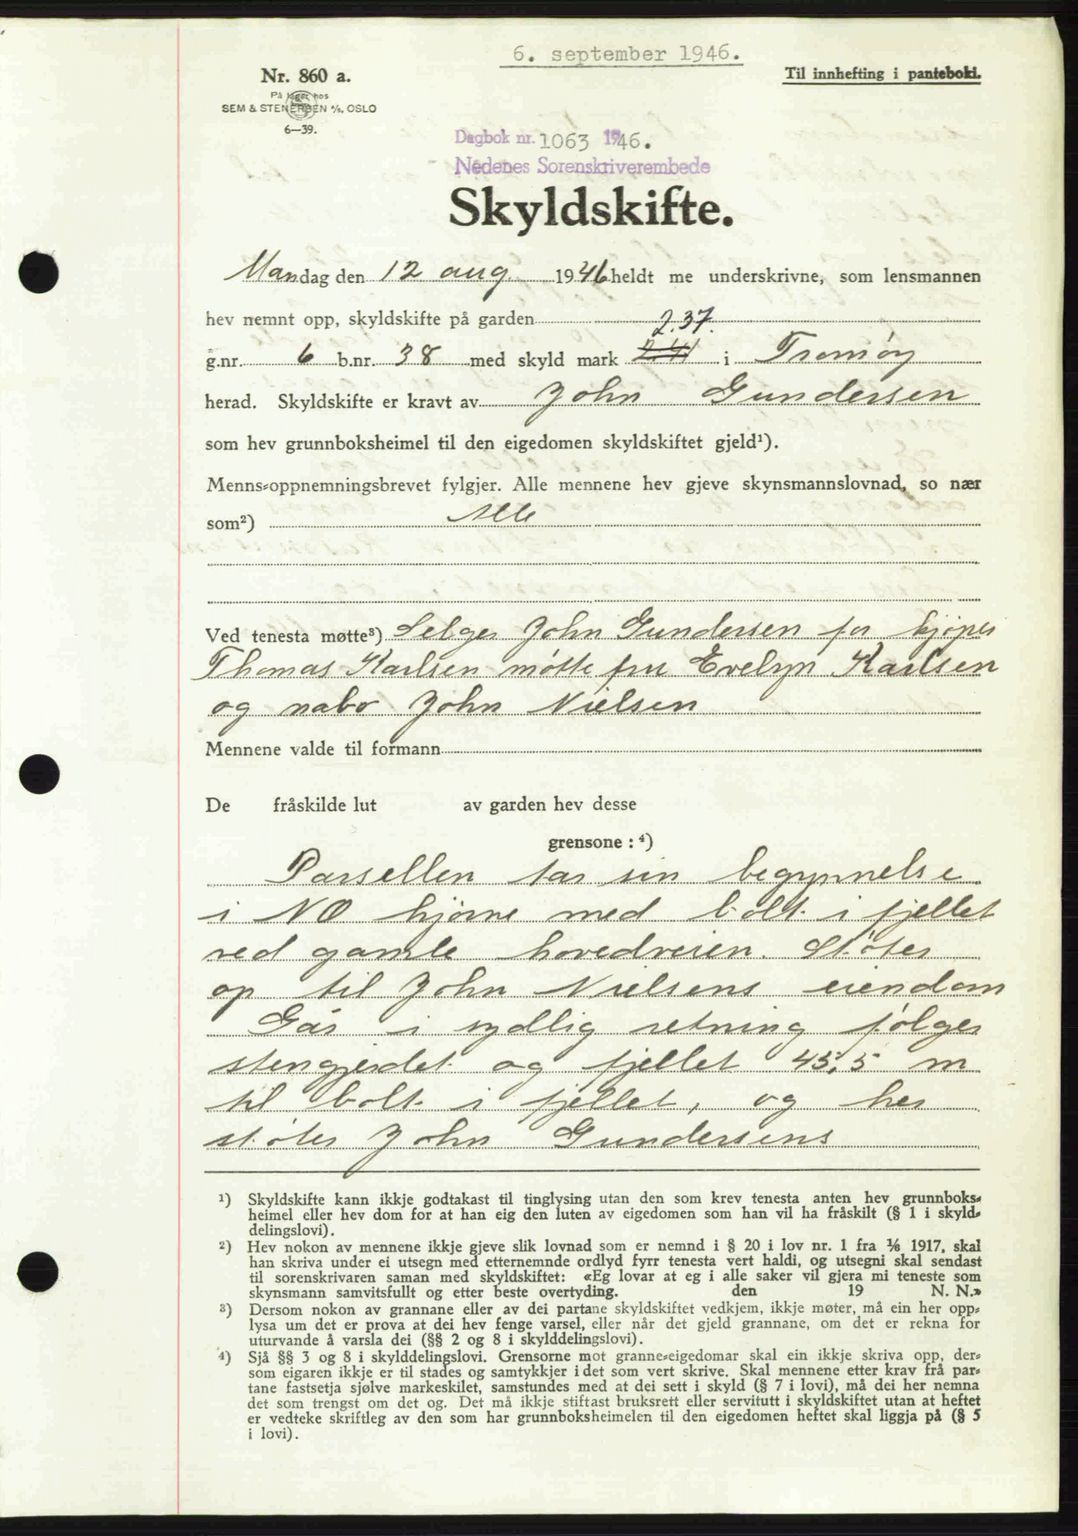 6. september 1946.
Til innhefting i panteboki.
Nr. 860 a.
På lager hos
SEM & STENERSEN A/S, OSLO
6—39.
Dagbok nr. 1063 1946.
Nedenes Sorenskriverembede
Skyldskifte.
Mandag den 12 aug. 1946 heldt me underskrivne, som lensmannen
hev nemnt opp, skyldskifte på garden
2.37.
g.nr. 6 b.nr. 38 med skyld mark 2.41 i Tromøy
herad. Skyldskifte er kravt av John Gundersen
som hev grunnboksheimel til den eigedomen skyldskiftet gjeld¹).
Menns-oppnemningsbrevet fylgjer. Alle mennene hev gjeve skynsmannslovnad, so nær
som²) Alle
Ved tenesta møtte³) Selger John Gundersen for kjøper
Thomas Karlsen møtte fru Evelyn Karlsen
og nabo John Nielsen
Mennene valde til formann
De fråskilde lut av garden hev desse
grensone : ⁴)
Parsellen tar sin begynnelse
i NØ hjørne med bolt i fjellet
ved gamle hovedveien. Støter
op til John Nielsens eiendom
Går i sydlig retning følger
stengjerdet og fjellet 45,5 m
til bolt i fjellet, og her
støter John Gundersens
¹) Skyldskifte kann ikkje godtakast til tinglysing utan den som krev tenesta anten hev grunnboks-
heimel eller hev dom for at han eig den luten av eigedomen som han vil ha fråskilt (§ 1 i skyld-
delingslovi).
²) Hev nokon av mennene ikkje gjeve slik lovnad som er nemnd i § 20 i lov nr. 1 fra ⅙ 1917, skal
han skriva under ei utsegn med etternemnde ordlyd fyrr tenesta vert haldi, og utsegni skal sendast
til sorenskrivaren saman med skyldskiftet: «Eg lovar at eg i alle saker vil gjera mi teneste som
skynsmann samvitsfullt og etter beste overtyding. den 19 N. N.»
³) Dersom nokon av grannane eller av dei partane skyldskiftet vedkjem, ikkje møter, må ein her opp-
lysa um det er prova at dei hev fenge varsel, eller når det gjeld grannane, om det er rekna for
uturvande å varsla dei (§§ 2 og 8 i skylddelingslovi).
⁴) Sjå §§ 3 og 8 i skylddelingslovi. Grensorne mot granne-eigedomar skal ein ikkje skriva opp, der-
som eigaren ikkje er til stades og samtykkjer i det som vert skrive. Skal mennene etter krav frå par-
tane fastsetja sjølve markeskilet, samstundes med at dei sett i skyld (§ 7 i lovi), må dei her nemna
det som trengst om det og. Det må ikkje stiftast bruksrett eller servitutt i skyldskiftet utan at heftet
er vedteke skriftleg av den som har grunnboksheimelen til den eigedomen heftet skal liggja på (§ 5
i lovi).